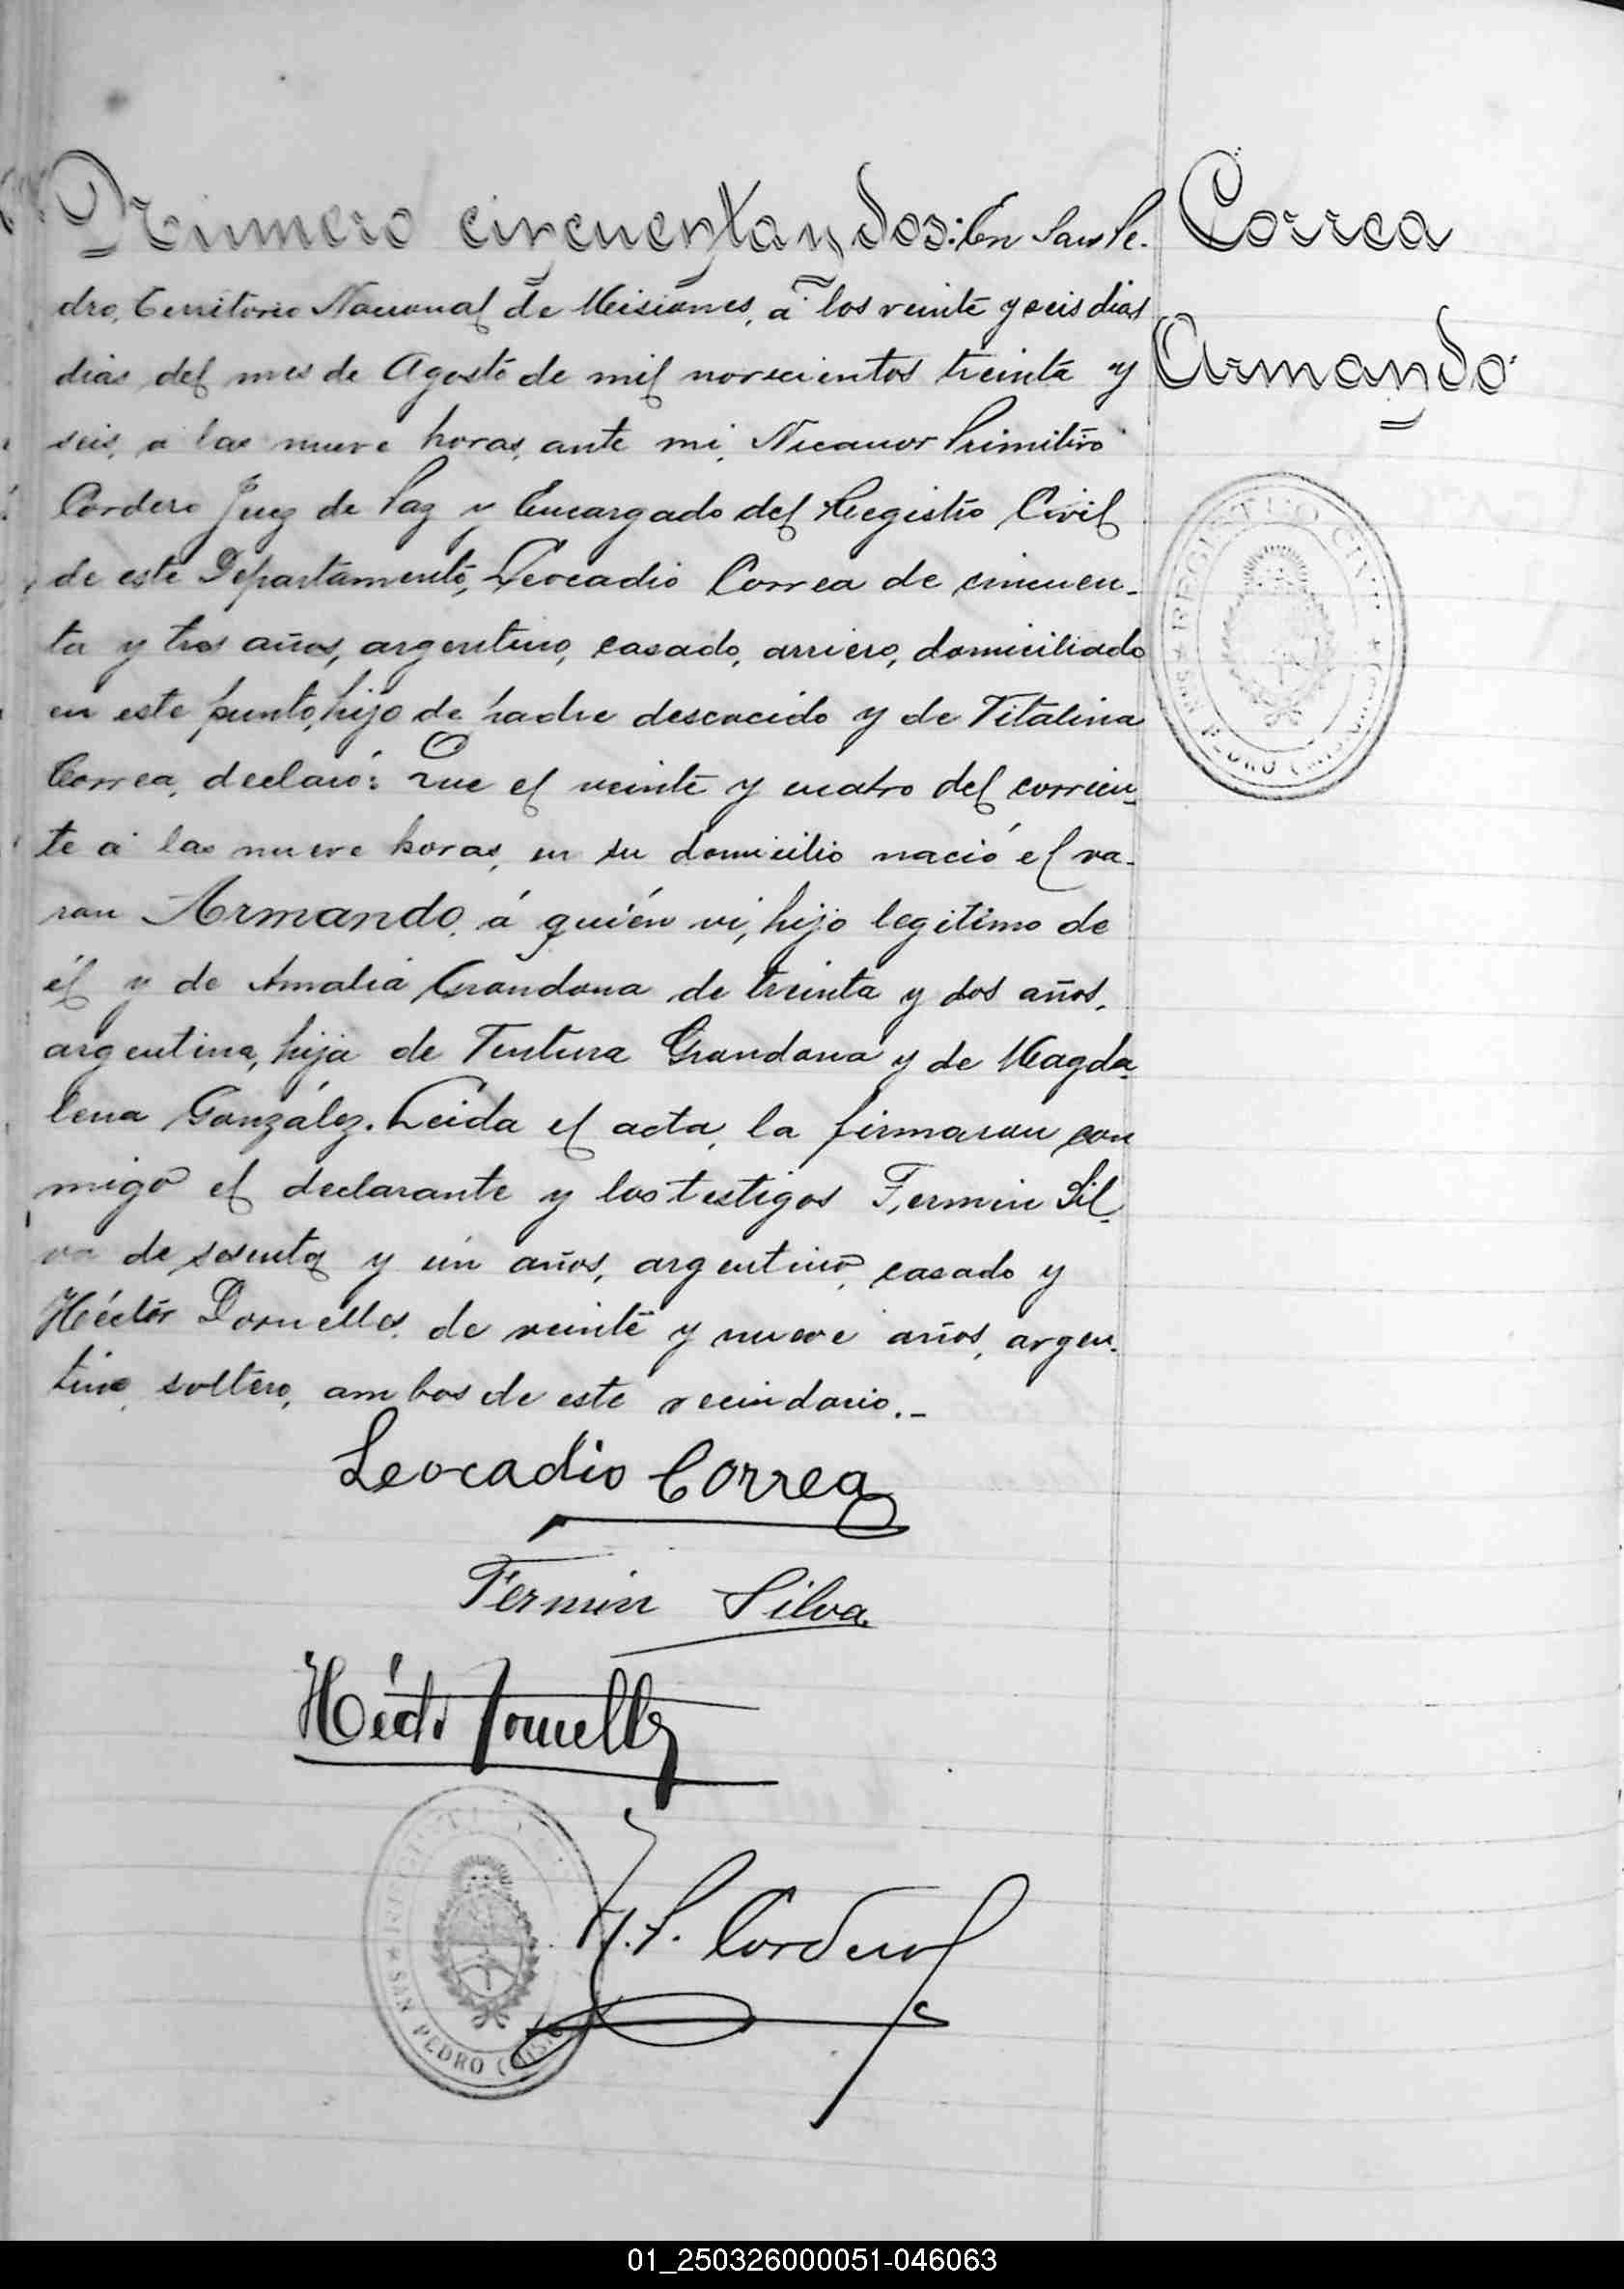 Número cincuenta y dos: En San Pe-
Correa
dro, Territorio Nacional de Misiones, a los veinte y seis dias
Armando
dias del mes de Agosto de mil novecientos treinta y
seis, a las nueve horas, ante mi, Nicanor Primitivo
Cordero Juez de Paz y Encargado del Registro Civil
de este Departamento, Leocadio Correa de cincuen-
ta y tres años, argentino, casado, arriero, domiciliado
en este punto, hijo de padre descocido y de Titalina
Correa, declaró: Que el veinte y cuatro del corrien-
te a las nueve horas, en su domicilio nació el va-
ron Armando, á quién vi, hijo legitimo de
él y de Amalia Grandona de treinta y dos años,
argentina, hija de Grandona y de Magda-
lena González. Leida el acta, la firmaron con
migo el declarante y los testigos Fermin Sil-
va de sesenta y un años, argentino, casado y
Héctor Dornelles, de veinte y nueve años, argen-
tino, soltero, ambos de este vecindario.-
REGISTRO CIVIL
SAN PEDRO (MIS.)
Leocadio Correa
Fermin Silva
Héctor Dornelles
N. P. Cordero
SAN PEDRO (MIS.)
01_250326000051-046063